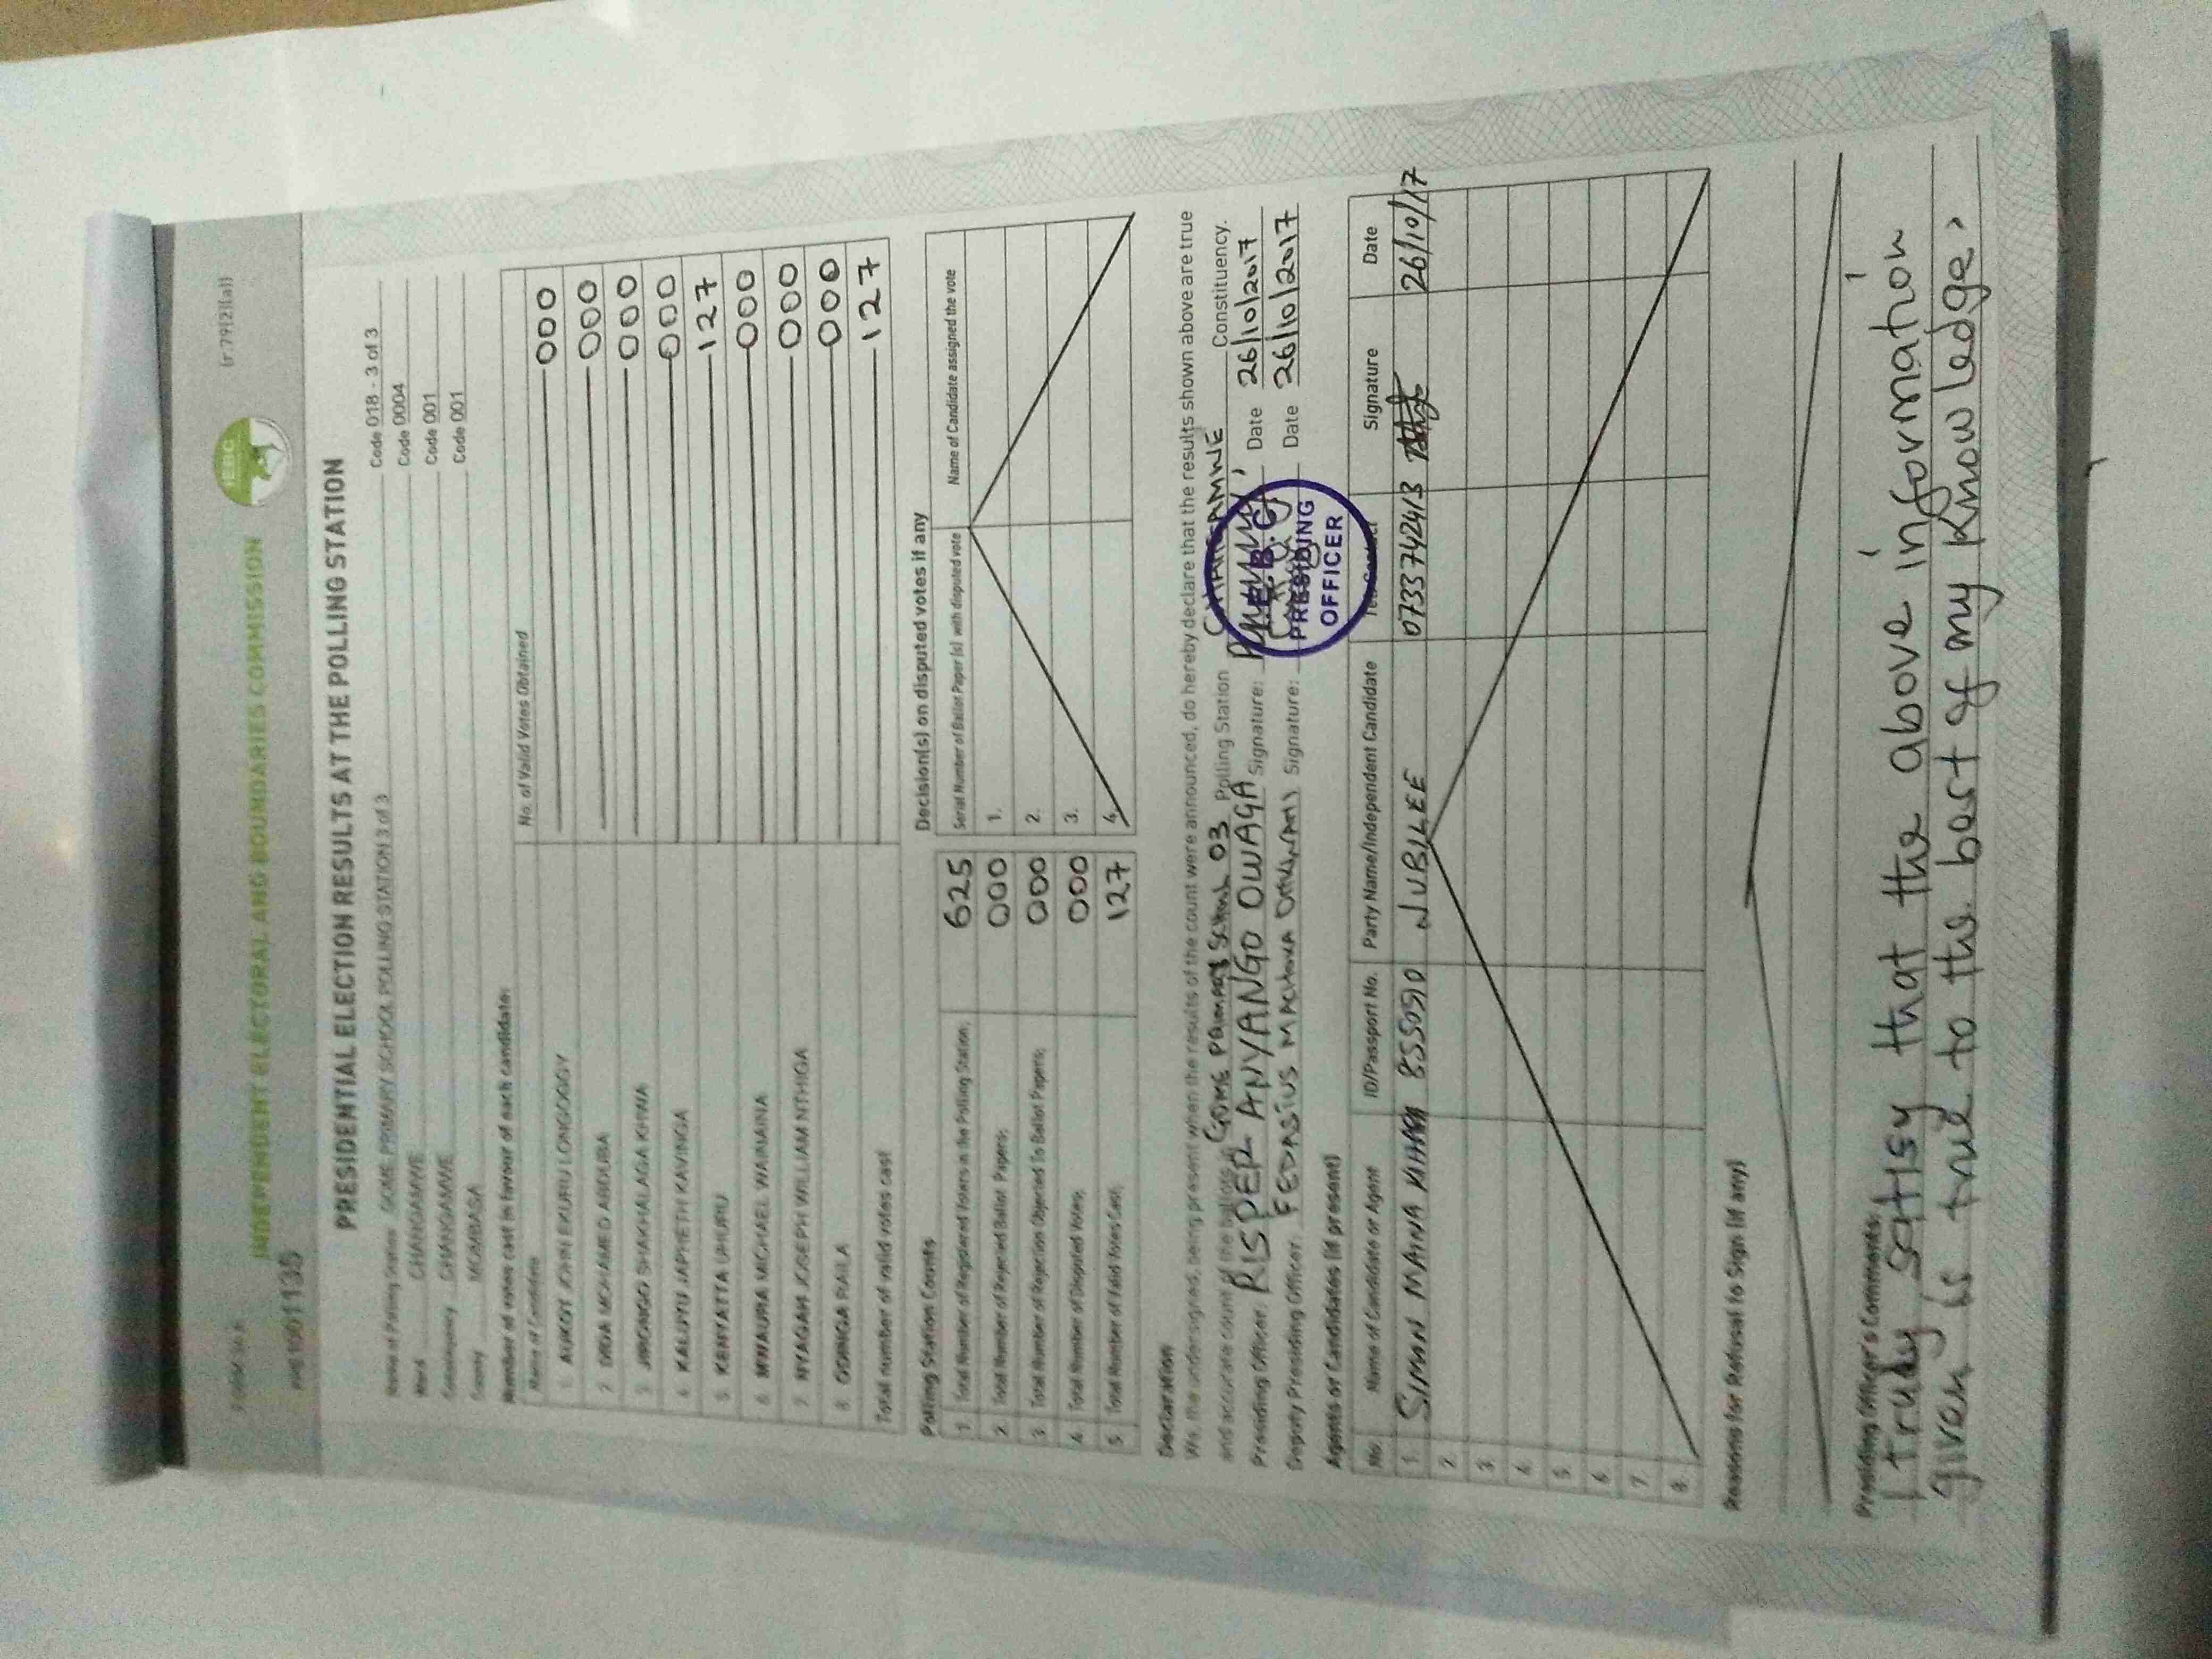 FORM 34 A
(r.79(2)(a))
INDEPENDENT ELECTORAL AND BOUNDARIES COMMISSION
IEBC
PRESIDENTIAL ELECTION RESULTS AT THE POLLING STATION
Name of Polling Station GOME PRIMARY SCHOOL POLLING STATION 3 of 3 Code 018 - 3 of 3
Ward CHANGAMWE Code 0004
Constituency CHANGAMWE Code 001
County MOMBASA Code 001
Number of votes cast in favour of each candidate:
Name of Candidate No. of Valid Votes Obtained
1. AUKOT JOHN EKURU LONGOGGY 000
2. DIDA MOHAMED ABDUBA 000
3. JIRONGO SHAKHALAGA KHWA 000
4. KALUYU JAPHETH KAVINGA 000
5. KENYATTA UHURU 127
6. MWAURA MICHAEL WAINAINA 000
7. NYAGAH JOSEPH WILLIAM NTHIGA 000
8. ODINGA RAILA 000
Total number of valid votes cast 127
Polling Station Counts
1. Total Number of Registered Voters in the Polling Station; 625
2. Total Number of Rejected Ballot Papers; 000
3. Total Number of Rejection Objected To Ballot Papers; 000
4. Total Number of Disputed Votes; 000
5. Total Number of Valid Votes Cast; 127
Decision(s) on disputed votes if any
Serial Number of Ballot Paper (s) with disputed vote Name of Candidate assigned the vote
1.
2.
3.
4.
Declaration
We, the undersigned, being present when the results of the count were announced, do hereby declare that the results shown above are true
and accurate count of the ballots in GOME PRIMARY SCHOOL 03 Polling Station CHANGAMWE Constituency.
Presiding Officer: RISPER ANYANGO OWAGA Signature: Date 26/10/2017
Deputy Presiding Officer: FEDASIUS MACHUKA Signature: Date 26/10/2017
I.E.B.C
PRESIDING
OFFICER
Agents or Candidates (if present)
No. Name of Candidate or Agent ID/Passport No. Party Name/Independent Candidate Tel. Contact Signature Date
1. SIMON MAINA 8550510 JUBILEE 0733742413 26/10/17
2.
3.
4.
5.
6.
7.
8.
Reasons for Refusal to Sign (if any)
Presiding Officer's Comments:
I trudy satisy that the above information
given is true to the best of my knowledge.